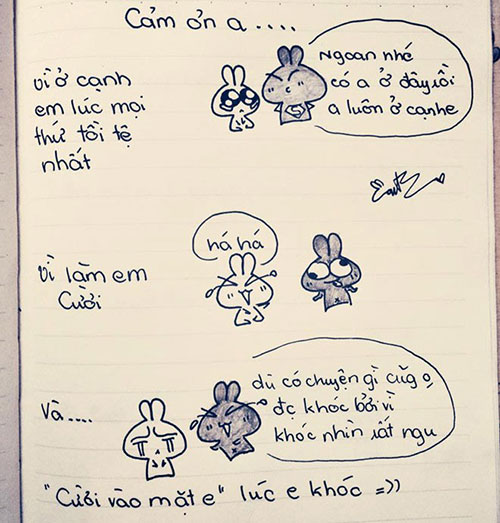 Cảm ơn a....
vì ở cạnh
em lúc mọi
thứ tồi tệ
nhất
Ngoan nhé
có a ở đây rồi
a luôn ở cạnh e
vì làm em
Cười
há há
Và....
dù có chuyện gì cũg o
đc khóc bởi vì
khóc nhìn rất ngu
"Cười vào mặt e" lúc e khóc =))